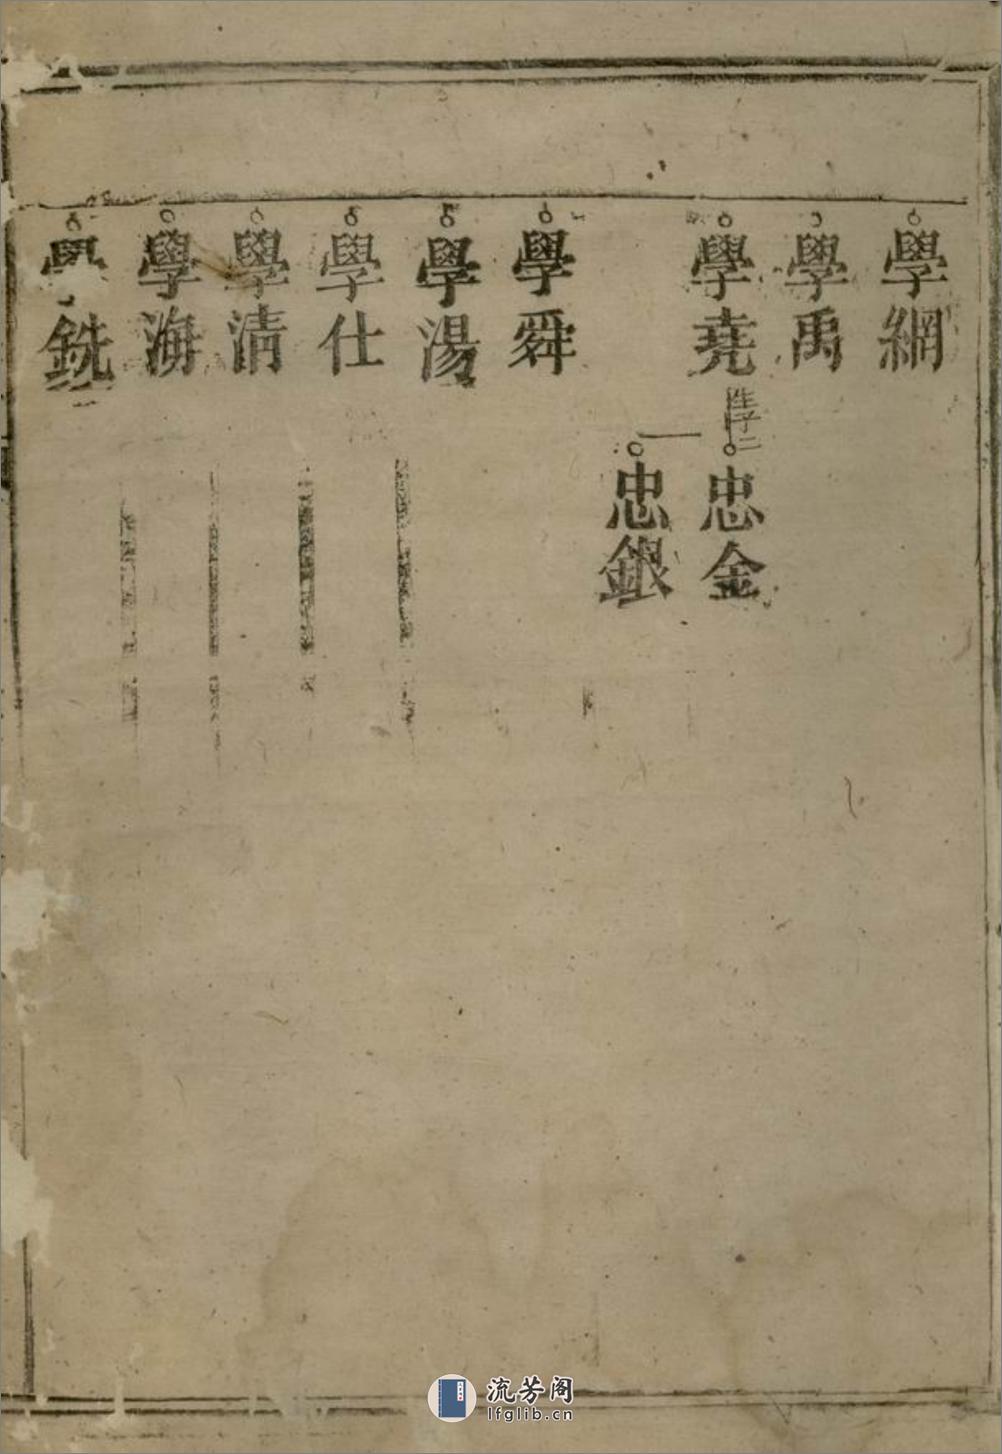 學網
學禹
學堯
生子二
忠金
忠銀
學舜
學湯
學仕
學清
學海
學銑
流芳阁
lfglib.cn